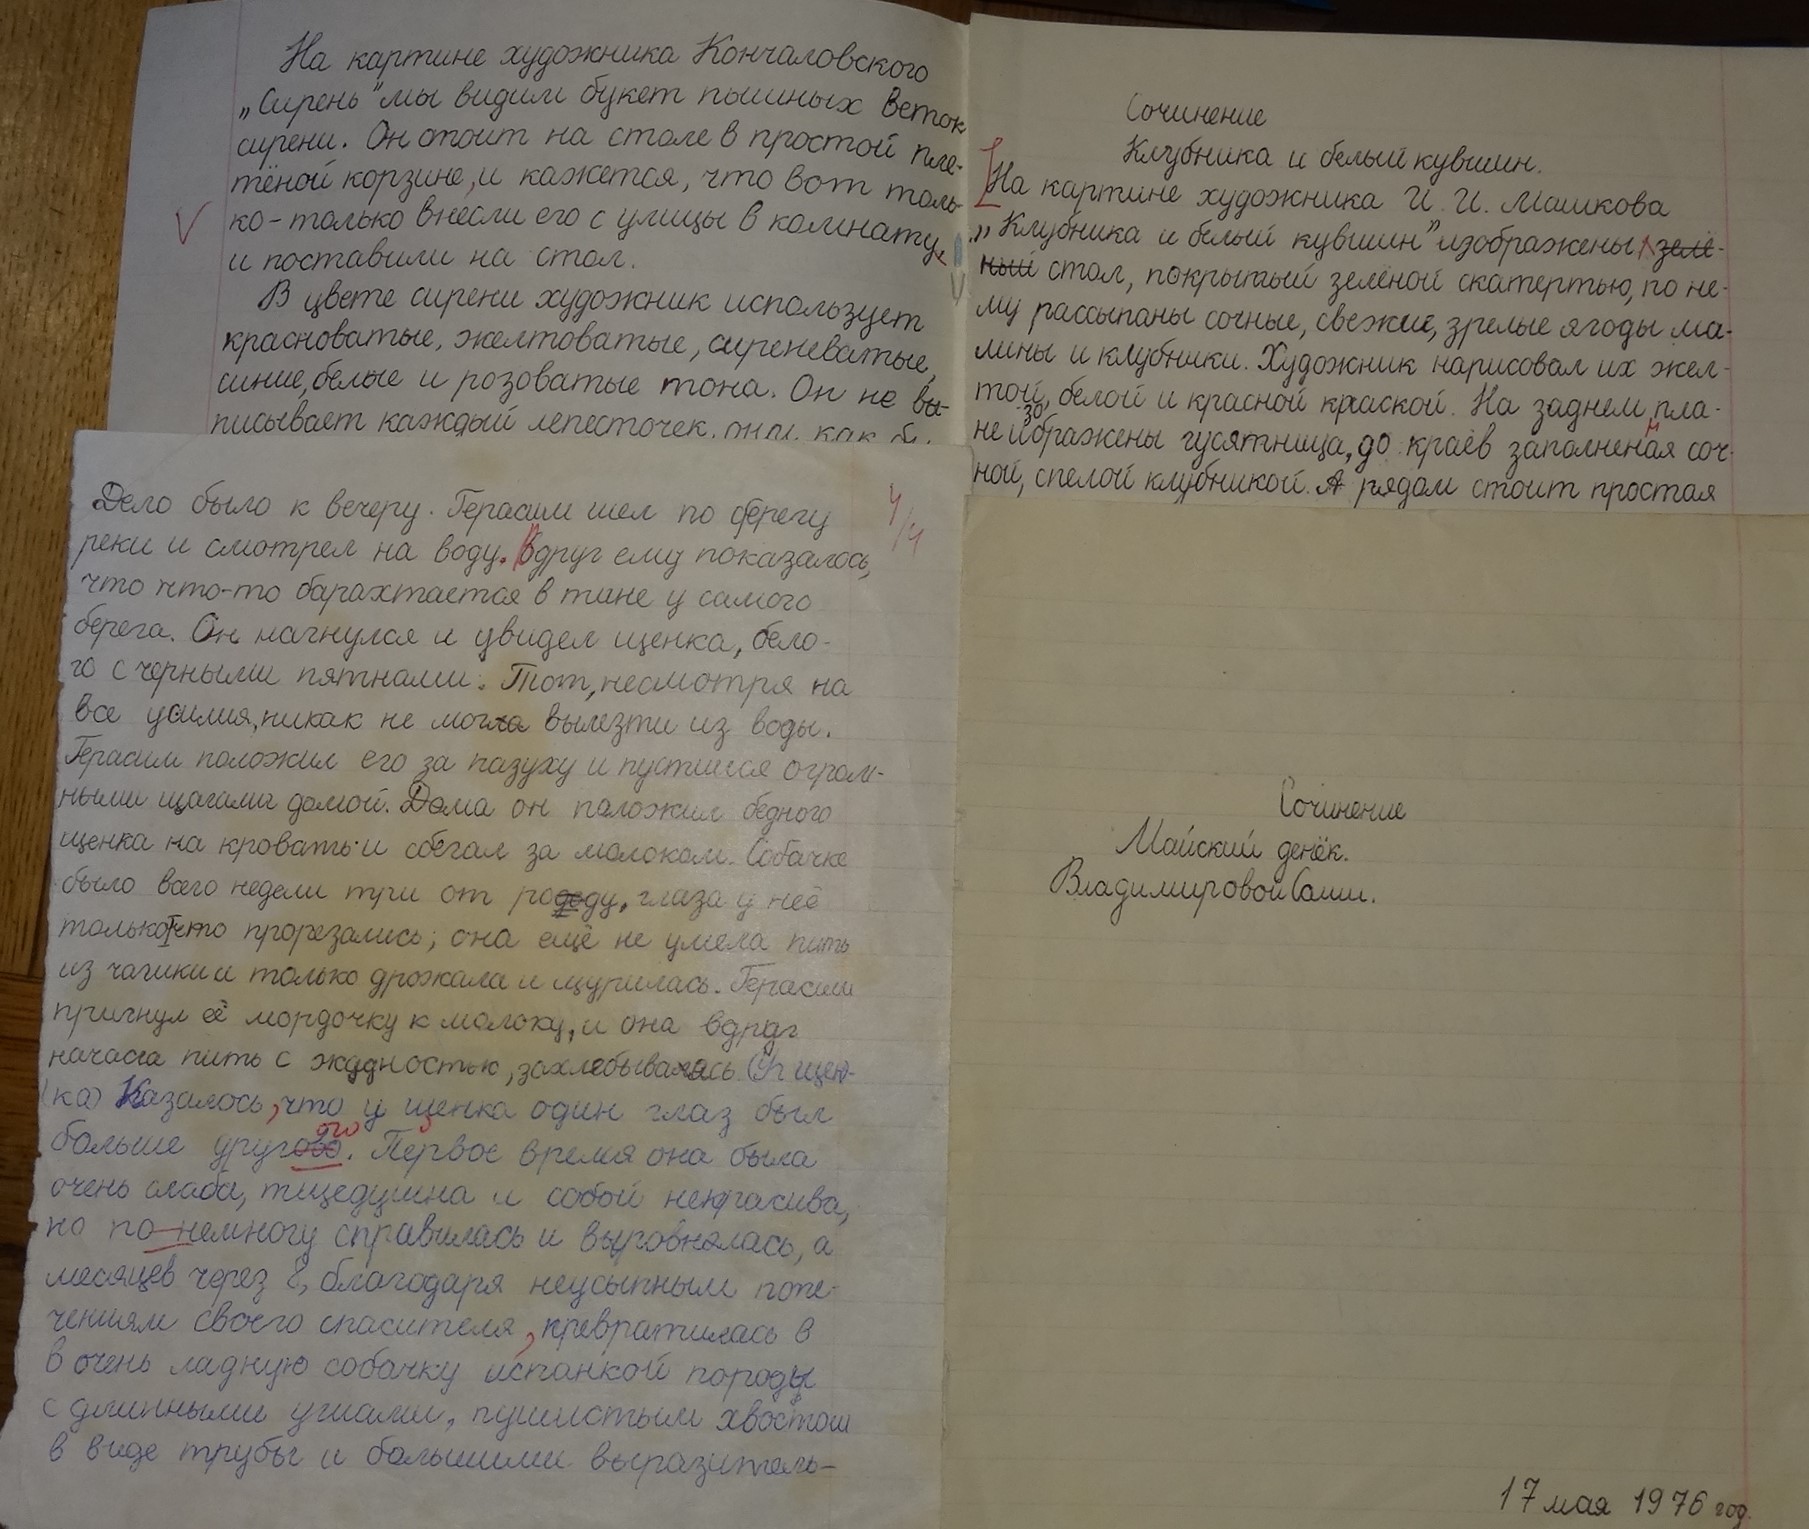 На картине художника Кончаловского
„Сирень" мы видим букет пышных веток
сирени. Он стоит на столе в простой пле-
тёной корзине, и кажется, что вот толь-
ко-только внесли его с улицы в комнату,
и поставили на стол.
В цвете сирени художник использует
красноватые, желтоватые, сиреневатые,
синие, белые и розоватые тона. Он не вы-
писывает каждый лепесточек, они, как бы
Сочинение
Клубника и белый кувшин.
На картине художника И. И. Машкова
„Клубника и белый кувшин" изображены зелё-
ный стол, покрытый зелёной скатертью, по не-
му рассыпаны сочные, свежие, зрелые ягоды ма-
лины и клубники. Художник нарисовал их жел-
той, белой и красной краской. На заднем пла-
не изображены гусятница, до краёв заполненная соч-
ной, спелой клубникой. А рядом стоит простая
Дело было к вечеру. Герасим шел по берегу
реки и смотрел на воду. Вдруг ему показалось,
что что-то барахтается в тине у самого
берега. Он нагнулся и увидел щенка, бело-
го с черными пятнами. Тот, несмотря на
все усилия, никак не мог вылезти из воды.
Герасим положил его за пазуху и пустился огром-
ными шагами домой. Дома он положил бедного
щенка на кровать и сбегал за молоком. Собачке
было всего недели три от роду, глаза у неё
только что прорезались; она ещё не умела пить
из чашки и только дрожала и щурилась. Герасим
пригнул её мордочку к молоку, и она вдруг
начала пить с жадностью, захлебываясь. (У щен-
ка) Казалось, что у щенка один глаз был
больше другово. ого Первое время она была
очень слаба, тщедушна и собой некрасива,
но по-немногу справилась и выровнялась, а
месяцев через 8, благодаря неусыпным попе-
чениям своего спасителя, превратилась в
в очень ладную собачку испанкой породы
с длинными ушами, пушистым хвостом
в виде трубы и большими выразитель-
4/4
Сочинение
Майский денёк.
Владимировой Саши.
17 мая 1976 год.